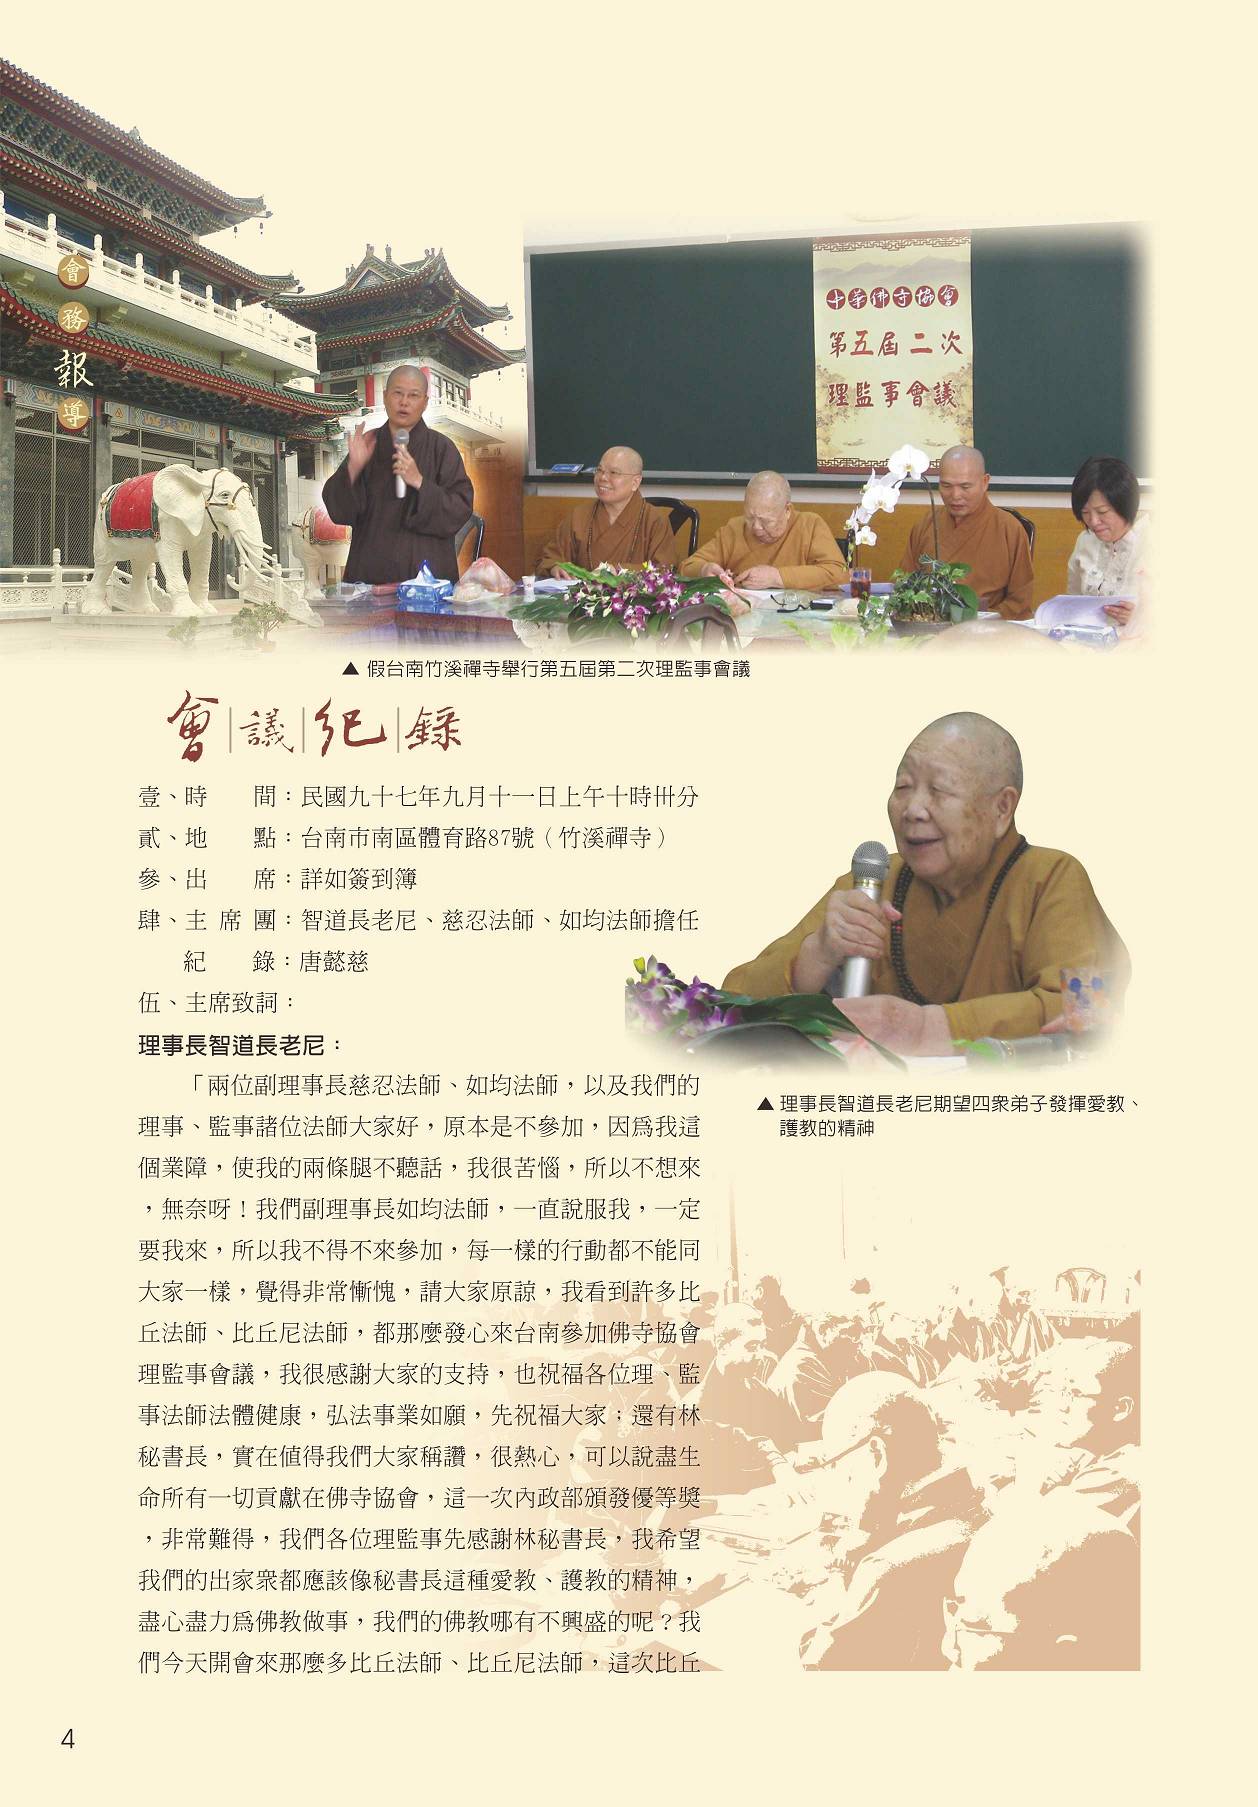 會務報導
中華佛寺協會
第五屆二次
理監事會議
▲ 假台南竹溪禪寺舉行第五屆第二次理監事會議
會議紀錄
壹、時　　間：民國九十七年九月十一日上午十時卅分
貳、地　　點：台南市南區體育路87號（竹溪禪寺）
參、出　　席：詳如簽到簿
肆、主 席 團：智道長老尼、慈忍法師、如均法師擔任
紀　　錄：唐懿慈
伍、主席致詞：
理事長智道長老尼：
「兩位副理事長慈忍法師、如均法師，以及我們的
理事、監事諸位法師大家好，原本是不參加，因為我這
個業障，使我的兩條腿不聽話，我很苦惱，所以不想來
，無奈呀！我們副理事長如均法師，一直說服我，一定
要我來，所以我不得不來參加，每一樣的行動都不能同
大家一樣，覺得非常慚愧，請大家原諒，我看到許多比
丘法師、比丘尼法師，都那麼發心來台南參加佛寺協會
理監事會議，我很感謝大家的支持，也祝福各位理、監
事法師法體健康，弘法事業如願，先祝福大家；還有林
秘書長，實在值得我們大家稱讚，很熱心，可以說盡生
命所有一切貢獻在佛寺協會，這一次內政部頒發優等獎
，非常難得，我們各位理監事先感謝林秘書長，我希望
我們的出家眾都應該像秘書長這種愛教、護教的精神，
盡心盡力為佛教做事，我們的佛教哪有不興盛的呢？我
們今天開會來那麼多比丘法師、比丘尼法師，這次比丘
▲ 理事長智道長老尼期望四眾弟子發揮愛教、
護教的精神
4